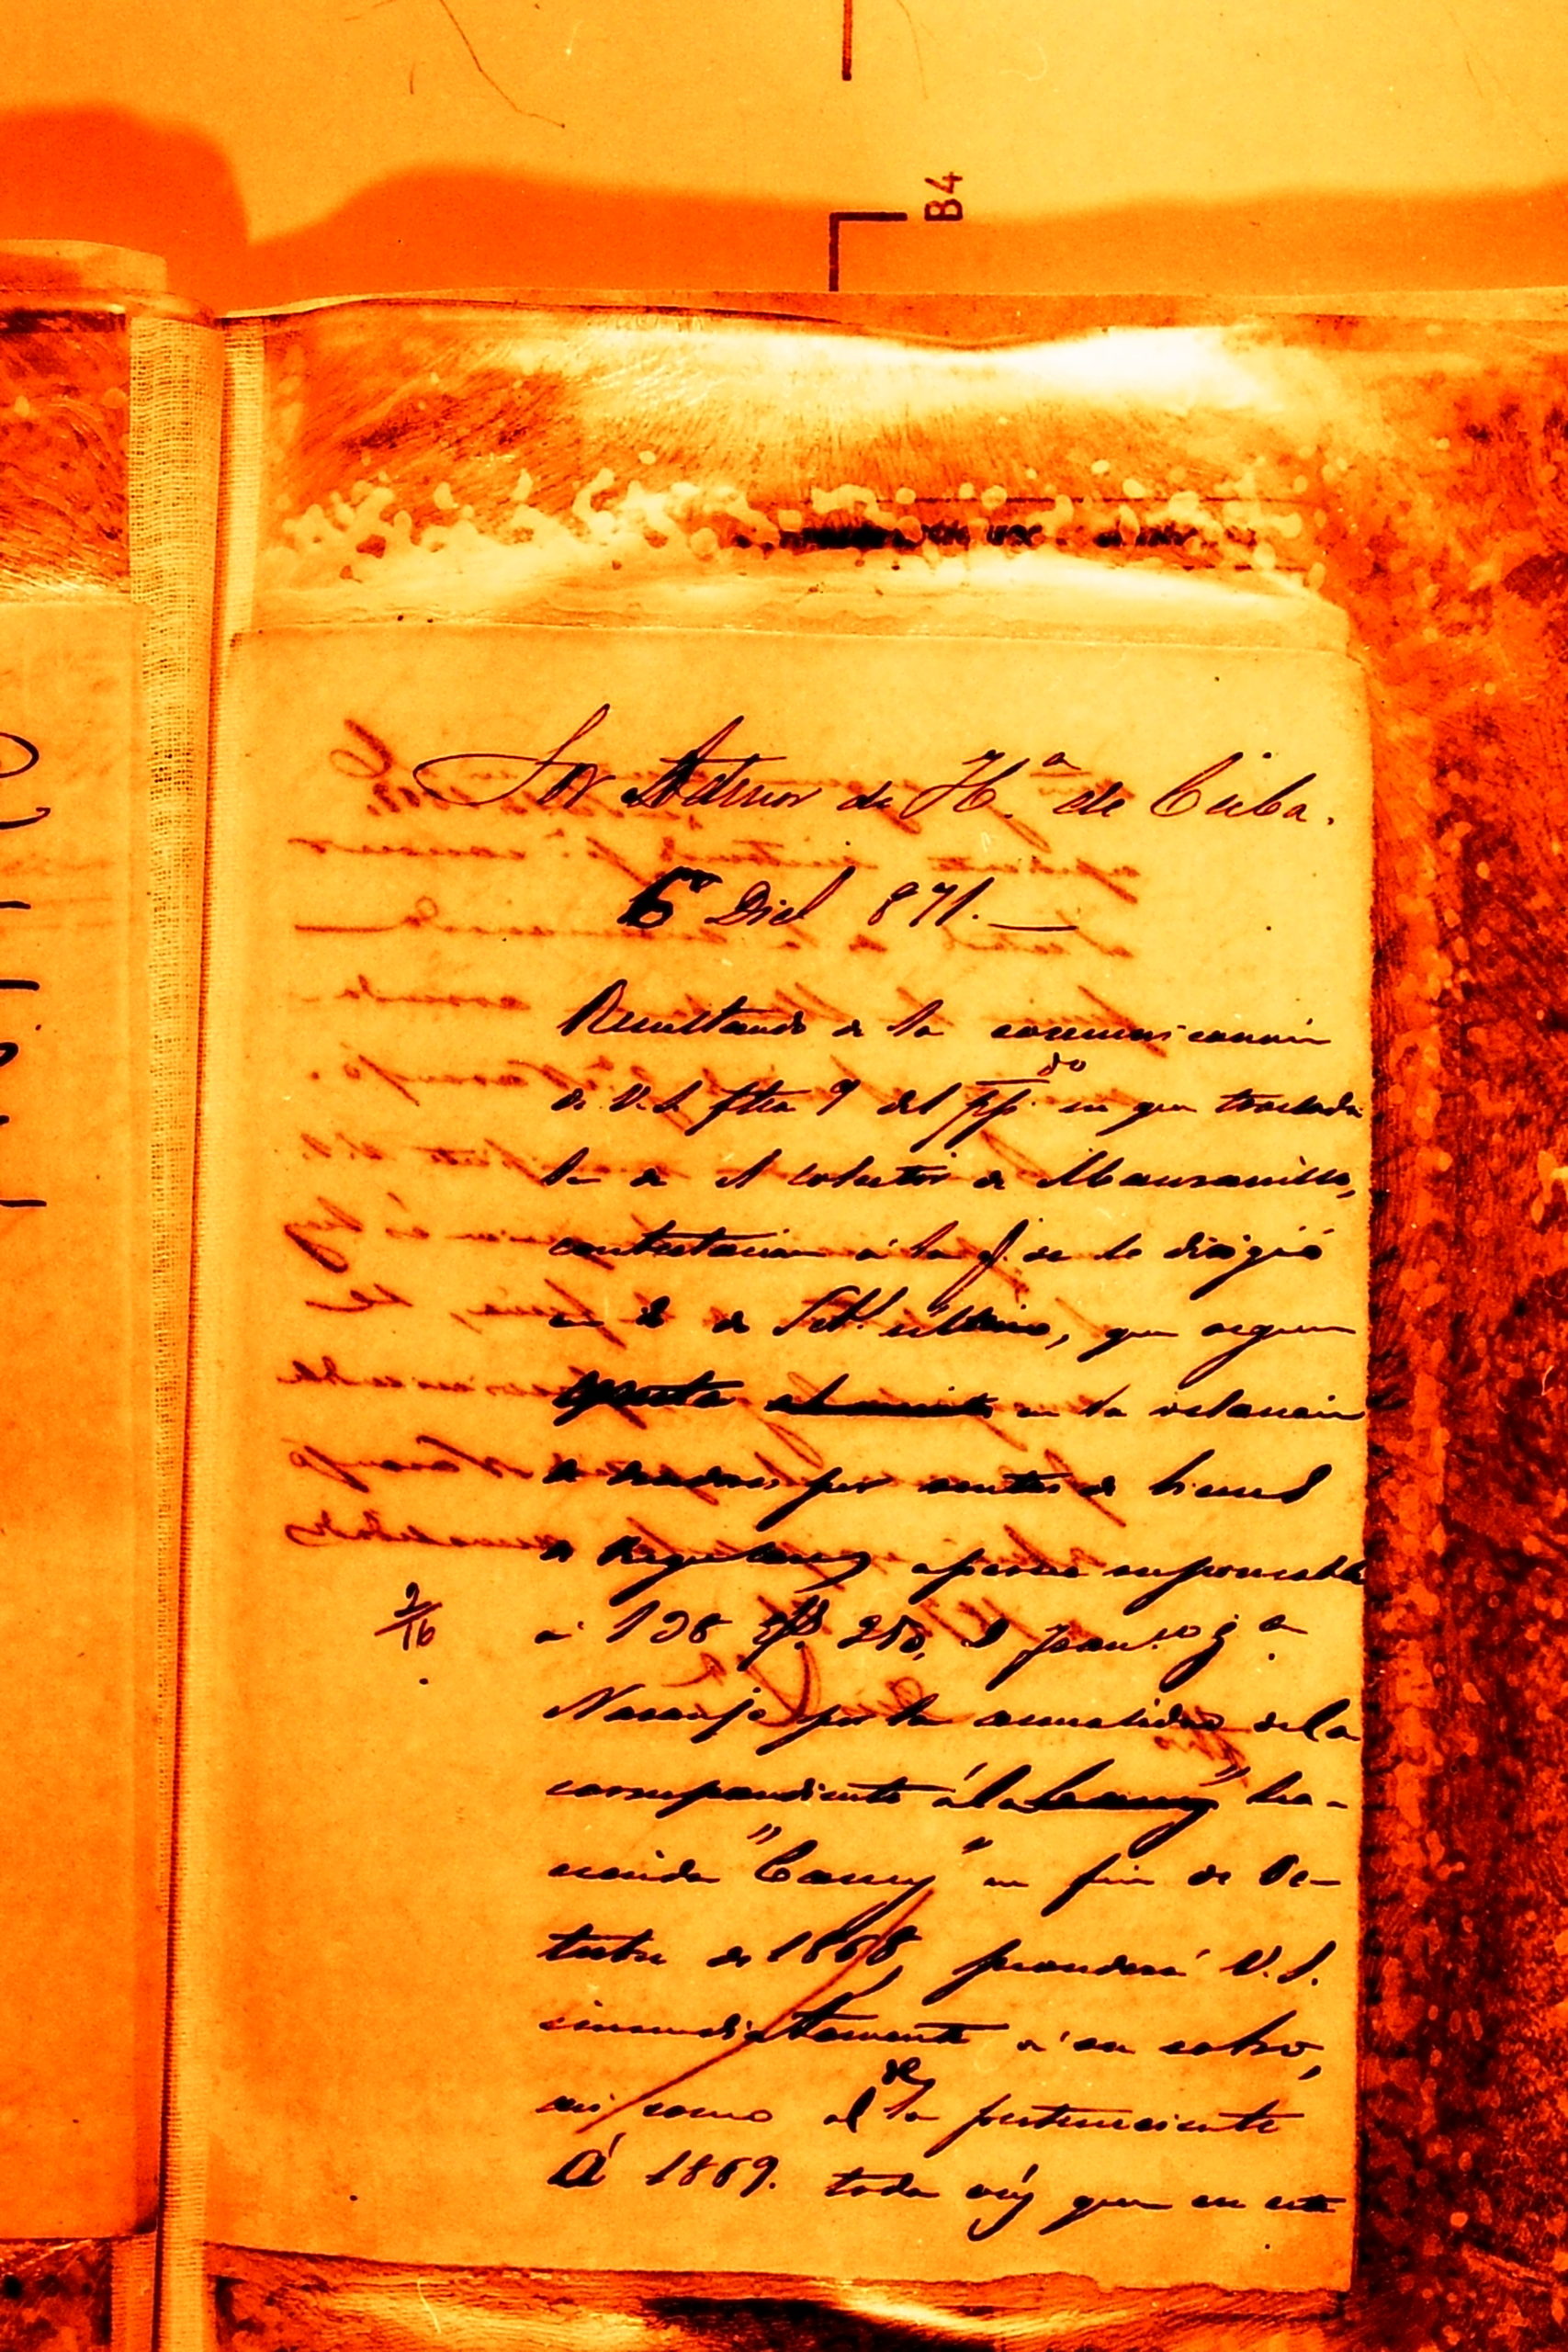 B4
Sor Admor de H.ª de Cuba.
6 Dicl 871.
Resultando de la comunicacion
de V.S. fha 9 del pp.do en que traslada
la de el colector de Manzanillo,
contestacion á la q. se le dirigió
en 2 de Set. último, que segun
en la relacion
de deudores por rentas de bienes
de Regulares aparece responsable
á 138 250, D Fran.co G.ª
Naranjo por la anualidad de la
correspondiente á la ha-
cienda "Cauey" en fin de Oc-
tubre de 1868, procederá V.S.
inmediatamente á su cobro,
asi como al de la perteneciente
á 1869. toda véz que en este
2/16